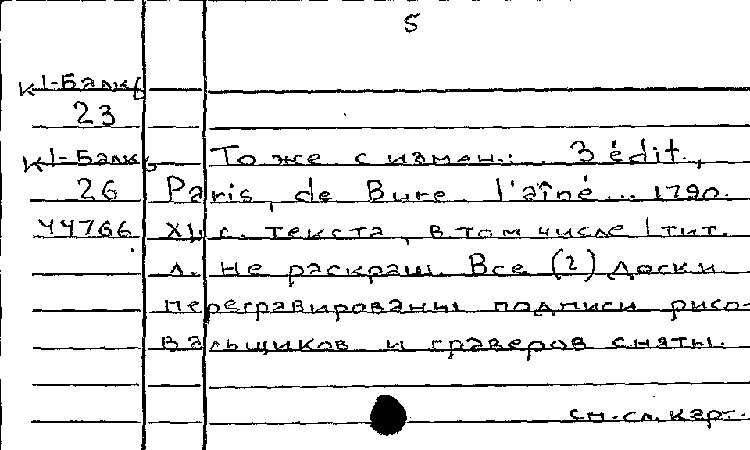 5
К1-Балк
23
К1-Балк То же с измен.: 3 édit.,
26 Paris, de Bure l'aîné... 1790.
44766 XI, с. текста, в том числе 1 тит.
л. Не раскраш. Все (?) доски
перегравированы подписи рисо-
вальщиков и граверов сняты.
см. сл. карт.